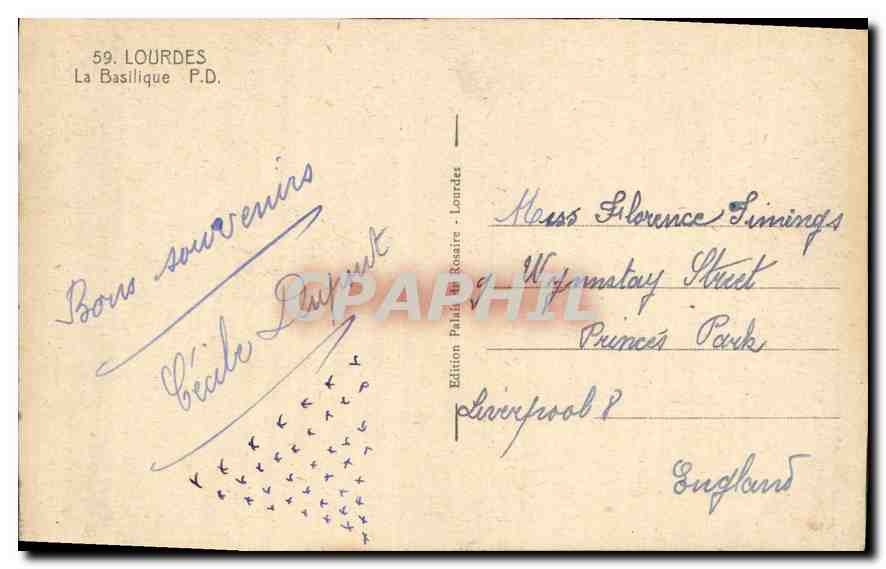 59. LOURDES
La Basilique P.D.
Bons souvenirs
Cécile Dupont
Edition Palais du Rosaire - Lourdes
Miss Florence Timings
9 Wynnstay Street
Princes Park
Liverpool 8
England
CPAPHIL